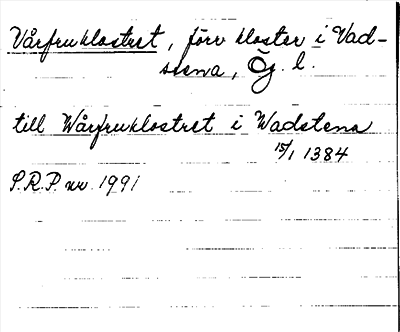 Vårfruklostret, förv kloster i Vad-
stena, Ög. l.
till Wårfruklostret i Wadstena
15/1 1384
S.R.P. nr. 1991